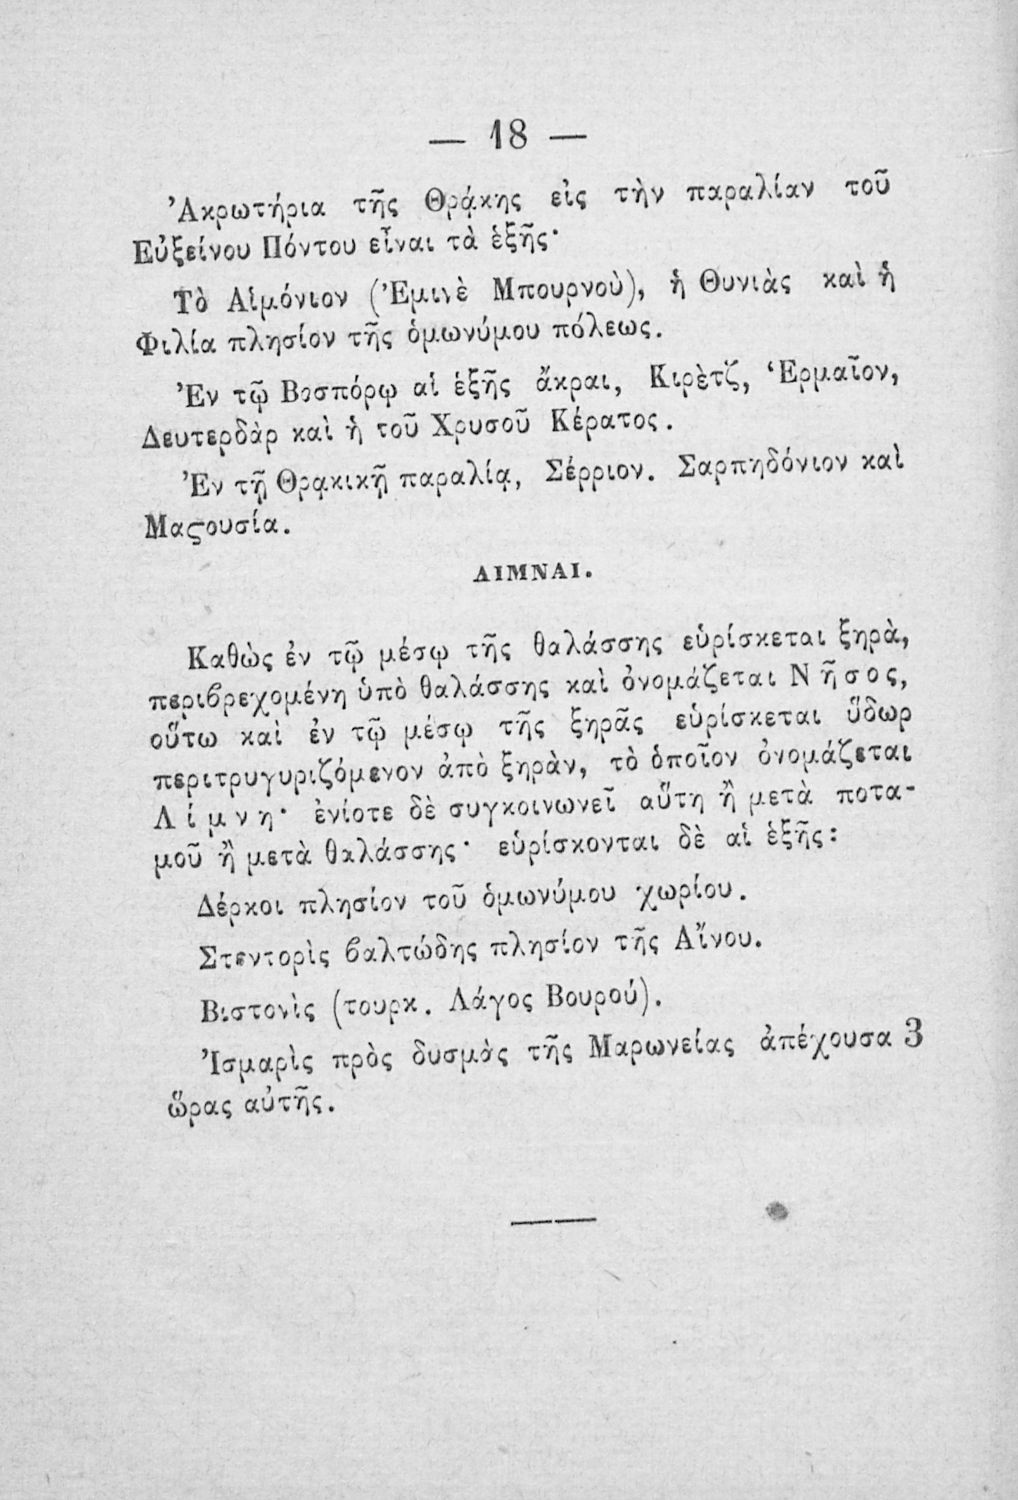 — 18 —
Ἀκρωτήρια τῆς Θρᾴκης εἰς τὴν παραλίαν τοῦ
Εὐξείνου Πόντου εἶναι τὰ ἑξῆς·
Τὸ Αἱμόνιον (Ἐμινὲ Μπουρνοὺ), ἡ Θυνιὰς καὶ ἡ
Φιλία πλησίον τῆς ὁμωνύμου πόλεως.
Ἐν τῷ Βοσπόρῳ αἱ ἑξῆς ἄκραι, Κιρὲτζ, Ἑρμαῖον,
Δευτερδὰρ καὶ ἡ τοῦ Χρυσοῦ Κέρατος.
Ἐν τῇ Θρᾳκικῇ παραλίᾳ, Σέρριον. Σαρπηδόνιον καὶ
Μαϛουσία.
ΛΙΜΝΑΙ.
Καθὼς ἐν τῷ μέσῳ τῆς θαλάσσης εὑρίσκεται ξηρὰ,
περιβρεχομένη ὑπὸ θαλάσσης καὶ ὀνομάζεται Νῆσος,
οὕτω καὶ ἐν τῷ μέσῳ τῆς ξηρᾶς εὑρίσκεται ὕδωρ
περιτρυγυριζόμενον ἀπὸ ξηρὰν, τὸ ὁποῖον ὀνομάζεται
Λίμνη· ἐνίοτε δὲ συγκοινωνεῖ αὕτη ἢ μετὰ ποτα-
μοῦ ἢ μετὰ θαλάσσης· εὑρίσκονται δὲ αἱ ἑξῆς:
Δέρκοι πλησίον τοῦ ὁμωνύμου χωρίου.
Στεντορὶς βαλτώδης πλησίον τῆς Αἴνου.
Βιστονὶς (τουρκ. Λάγος Βουρού).
Ἰσμαρὶς πρὸς δυσμὰς τῆς Μαρωνείας ἀπέχουσα 3
ὥρας αὐτῆς.